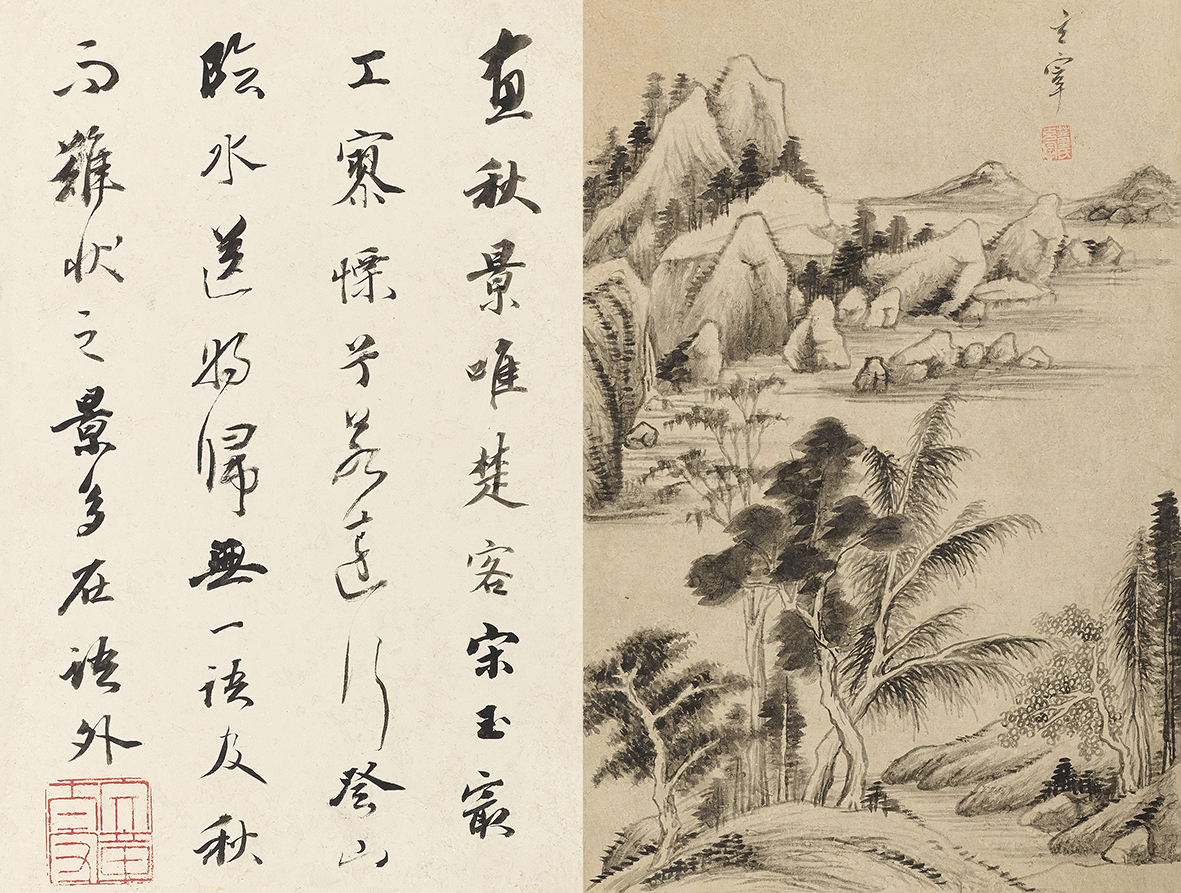 玄宰
畫秋景唯楚客宋玉最
工寥慄兮若遠行登山
臨水送將歸無一語及秋
而難狀之景多在語外